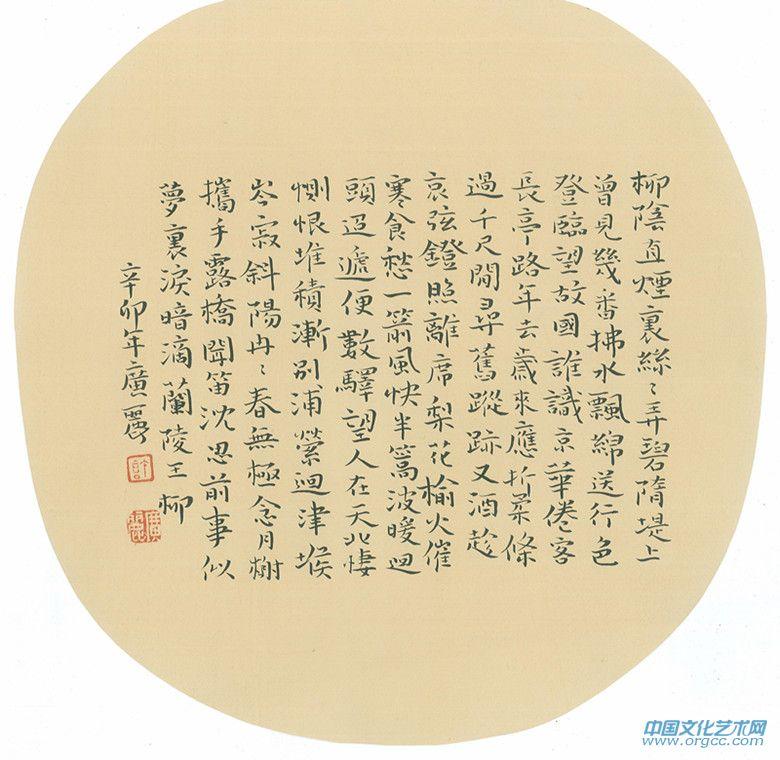 柳陰直煙裏絲〻弄碧隋堤上
曾見幾番拂水飄綿送行色
登臨望故國誰識京華倦客
長亭路年去歲來應折柔條
過千尺閒尋舊蹤跡又酒趁
哀弦鐙照離席梨花榆火催
寒食愁一箭風快半篙波暖迴
頭迢遞便數驛望人在天北悽
惻恨堆積漸別浦縈迴津堠
岑寂斜陽冉〻春無極念月榭
攜手露橋聞笛沈思前事似
夢裏淚暗滴蘭陵王柳
辛卯年廣麗
許
廣麗
中国文化艺术网
www.orgcc.com